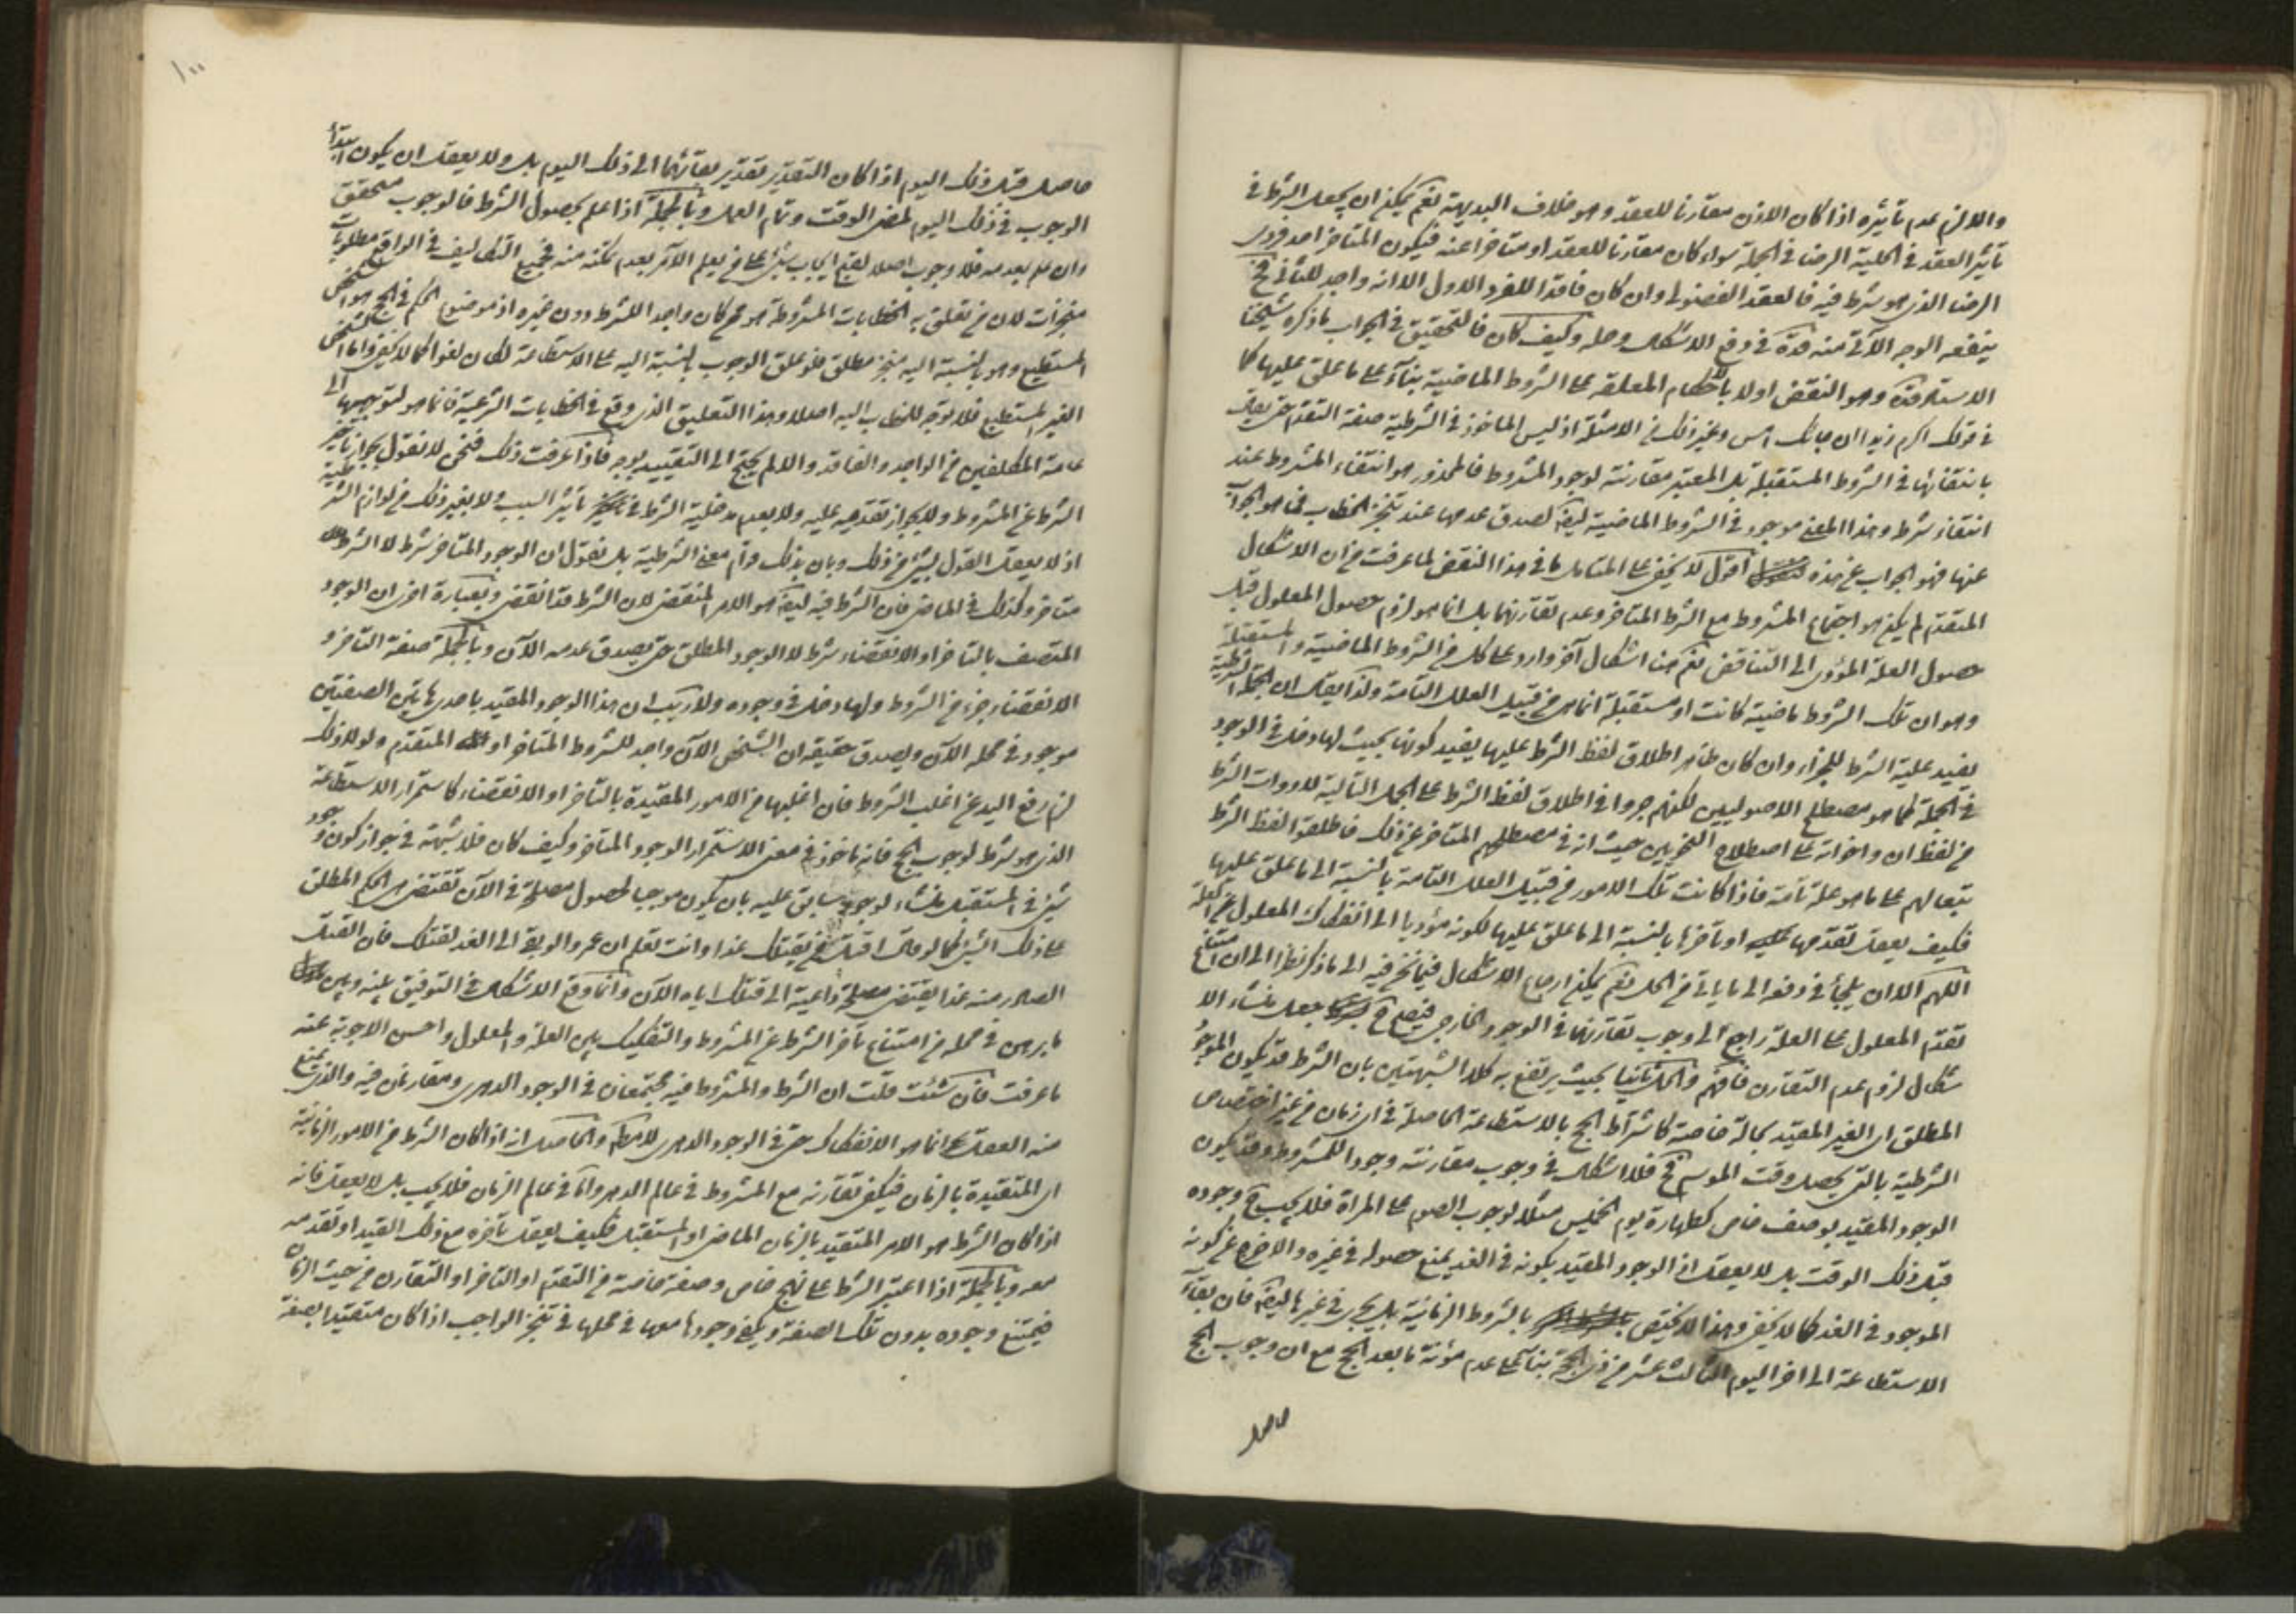 واللازم عدم تأثيره اذا كان الاذن مقارنا للعقد وهو خلاف البديهة نعم يمكن ان يجعل الشرط في
تأثير العقد في الملكية الرضا في الجملة سواء كان مقارنا للعقد او متاخرا عنه فيكون المتاخر احد فردى
الرضا الذى هو شرط فيه فالعقد الفضولى وان كان فاقدا للفرد الاول الا انه واجد للثانى ح
الوجه الآتى منه قده فى دفع الاشكال وحله وكيف كان فالتحقيق فى الجواب ما ذكره شيخنا
الاستاد قده وهو النقض اولا بالاحكام المعلقة على الشروط الماضية بناء على ما علق عليها كما
فى قولك اكرم زيدا ان جائك امس وغير ذلك من الامثلة اذ ليس الماخوذ فى الشرطية صفة التقدم حتى يقال
بانتفائها فى الشروط المستقبلة بل المعتبر مقارنته لوجود المشروط فالمحذور هو انتفاء المشروط عند
انتفاء شرط وهذا المعنى موجود فى الشروط الماضية ايضا لصدق عدمها عند تنجز الخطاب فما هو الجواب
عنها فهو الجواب عن هذه اقول لا يخفى على المتامل ما فى هذا النقض لما عرفت من ان الاشكال
المتقدم لم يكن هو اجتماع المشروط مع الشرط المتاخر وعدم تقارنهما بل انما هو لزوم حصول المعلول قبل
حصول العلة المؤدى الى التناقض نعم هنا اشكال آخر وارد على كل من الشروط الماضية والمستقبلة
وهو ان تلك الشروط ماضية كانت او مستقبلة انما هى من قبيل العلل التامة ولذا يقال ان الجملة الشرطية
يفيد علية الشرط للجزاء وان كان ظاهر اطلاق لفظ الشرط عليها يفيد كونها بحيث لها دخل فى الوجود
فى الجملة كما هو مصطلح الاصوليين لكنهم جروا فى اطلاق لفظ الشرط على الجمل التالية لادوات الشرط
من لفظ ان واخواته على اصطلاح النحويين حيث ان فى مصطلحهم المتاخر عن ذلك فاطلقوا لفظ الشرط
تبعا لهم على ما هو علة تامة فاذا كانت تلك الامور من قبيل العلل التامة بالنسبة الى ما علق عليها
فكيف يعقل تقدمها او تاخرها بالنسبة الى ما علق عليها لكونه مؤديا الى انفكاك المعلول عن العلة
اللهم الا ان يلجأ فى دفعه الى ما ياتى من الحل نعم يمكن ارجاع الاشكال فيما نحن فيه الى ما ذكر نظرا الى ان امتناع
تقدم المعلول على العلة راجع الى وجوب تقارنهما فى الوجود الخارجى فيصح ح جعل منشاء الا
شكال لزوم عدم التقارن فافهم والحل ثانيا بحيث يرتفع به كلا الشبهتين بان الشرط قد يكون الموجود
المطلق اى الغير المقيد بحالة خاصة كاشتراط الحج بالاستطاعة الحاصلة فى اى زمان من غير اختصاص
الشرطية بالتى يحصل وقت الموسم ح فلا اشكال فى وجوب مقارنته وجودا للمشروط وقد يكون
الوجود المقيد بوصف خاص كطهارة يوم الخميس مثلا لوجوب الصوم على المراة فلا يجب ح وجوده
قبل ذلك الوقت بل لا يعقل اذ الوجود المقيد بكونه فى الغد يمنع حصوله فى غيره والا خرج عن كونه
الموجود فى الغد كما لا يخفى وهذا لا يختص بالشروط الزمانية بل يجرى فى غيرها ايضا فان بقاء
الاستطاعة الى اخر اليوم الثالث عشر من ذى الحجة بناء على عدم مؤنة ما بعد الحج مع ان وجوب الحج
حاصل
١٠٠
حاصل قبل ذلك اليوم اذا كان التقدير تقدير بقائها الى ذلك اليوم بل ولا يعقل ان يكون ابتداء
الوجوب فى ذلك اليوم لمضى الوقت وتمام العمل وبالجملة اذا علم بحصول الشرط فالوجوب متحقق
وان علم بعدمه فلا وجوب اصلا لقبح ايجاب شئ على من يعلم الآمر بعدم تمكنه منه فجميع التكاليف فى الواقع مطلوبات
منجزات لان من تعلق به الخطابات المشروطة هو من كان واجدا للشرط دون غيره اذ موضوع الحكم فى الحج هو الشخص
المستطيع وهو بالنسبة اليه منجز مطلق فلو علق الوجوب بالنسبة اليه على الاستطاعة لكان لغوا كما لا يخفى واما الشخص
الغير المستطيع فلا توجه للخطاب اليه اصلا وهذا التعليق الذى وقع فى الخطابات الشرعية فانما هو لتوجيهها الى
عامة المكلفين من الواجد والفاقد والا لم يحتج الى التقييد بوجه فاذا عرفت ذلك فنحن لا نقول بجواز تأخر
الشرط عن المشروط ولا بجواز تقدمه عليه ولا بعدم مدخلية الشرط فى تأثير السبب ولا بغير ذلك من لوازم الشرطية
اذ لا يعقل القول بشئ من ذلك وبان بذلك قوام معنى الشرطية بل نقول ان الوجود المتاخر شرط لا الشرط
متاخر وكذلك فى الماضى فان الشرط فيه ايضا هو الامر المنقضى لان الشرط قد انقضى وبعبارة اخرى ان الوجود
المتصف بالتاخر او الانقضاء شرط لا الوجود المطلق حتى يصدق عدمه الآن وبالجملة صفة التاخر و
الانقضاء جزء من الشروط ولها دخل فى وجوده ولا ريب ان هذا الوجود المقيد باحدى هاتين الصفتين
موجود فى محله الآن ويصدق حقيقة ان الشخص الآن واجد للشروط المتاخر او المتقدم ولو لا ذلك
لزم رفع اليد عن اغلب الشروط فان اغلبها من الامور المقيدة بالتاخر او الانقضاء كاستمرار الاستطاعة
الذى هو شرط لوجوب الحج فانه ماخوذ فى معنى الاستمرار الوجود المتاخر وكيف كان فلا شبهة فى جواز كون وجود
شئ فى المستقبل منشاء لوجوب سابق عليه بان يكون موجبا لحصول مصلحة فى الآن تقتضى الحكم المطلق
على ذلك الشئ كما لو قال اقتل من يقتلك غدا وانت تعلم ان عمروا لو بقى الى الغد لقتلك فان القتل
الصادر منه غدا يقتضى مصلحة داعية الى قتلك اياه الآن وانما وقع الاشكال فى التوفيق بينه وبين
ما برهن فى محله من امتناع تأخر الشرط عن المشروط والتفكيك بين العلة والمعلول واحسن الاجوبة عنه
ما عرفت فان شئت قلت ان الشرط والمشروط فيه مجتمعان فى الوجود الدهرى ومقارنان فيه والذى يمنع
منه العقل انما هو الانفكاك حتى فى الوجود الدهرى والحاصل انه اذا كان الشرط من الامور الزمانية
اى المتقيدة بالزمان فيكفى تقارنه مع المشروط فى عالم الدهر واما فى عالم الزمان فلا يجب بل لا يعقل فانه
اذا كان الشرط هو الامر المتقيد بالزمان الماضى او المستقبل فكيف يعقل تأخره مع ذلك القيد او تقدمه
معه وبالجملة اذا اعتبر الشرط على نهج خاص وصفة خاصة من التقدم او التاخر او التقارن من حيث الزمان
فيمتنع وجوده بدون تلك الصفة ويكفى وجودها معها فى محلها فى تنجز الواجب اذا كان متقيدا بصفة